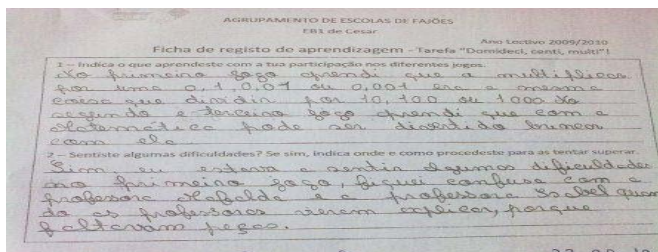 AGRUPAMENTO DE ESCOLAS DE FAJÕES
EB1 de Cesar
Ano Lectivo 2009/2010
Ficha de registo de aprendizagem - Tarefa "Domideci, centi, multi"!
1 – Indica o que aprendeste com a tua participação nos diferentes jogos.
No primeiro jogo aprendi que a multiplicar
por uma 0,1, 0,01 ou 0,001 era a mesma
coisa que dividir por 10, 100 ou 1000 No
segundo e terceiro jogo aprendi que com a
Matemática pode ser divertido brincar
com ela
2 – Sentiste algumas dificuldades? Se sim, indica onde e como procedeste para as tentar superar.
Sim eu estava a sentir algumas dificuldades
no primeiro jogo, fiquei confusa com a
professora Mafalda e a professora Isabel quan
do as professoras vieram explicar, porque
faltavam peças.